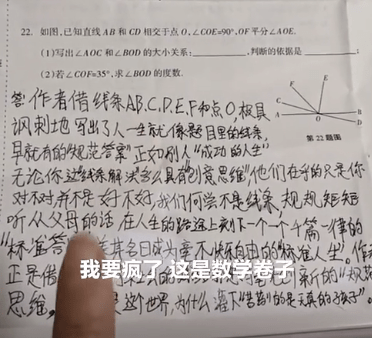 22. 如图,已知直线 AB 和 CD 相交于点 O,∠COE=90°,OF 平分∠AOE.
(1)写出∠AOC 和∠BOD 的大小关系: ,判断的依据是 ;
(2)若∠COF=35°,求∠BOD 的度数.
E
F
C
A
O
B
D
第 22 题图
答:作者借线条AB、C、D、E、F和点O,极具
讽刺地写出了人一生就像题目里的线条,
早就有的"规范答案"正如别人"成功的人生"
无论你 线条解决多么具 创意思维",他们在乎的只是你
对不对并不是好不好,我们何尝不是线条,规规矩矩
听从父母的话,在人生的路途上刻下一个一个千篇一律的
"标准答 美其名曰成为 自由的"标准人生".作
正是借 新的"规
思维 是这个世界,为什么 的是天真的孩子".
我要疯了 这是数学卷子